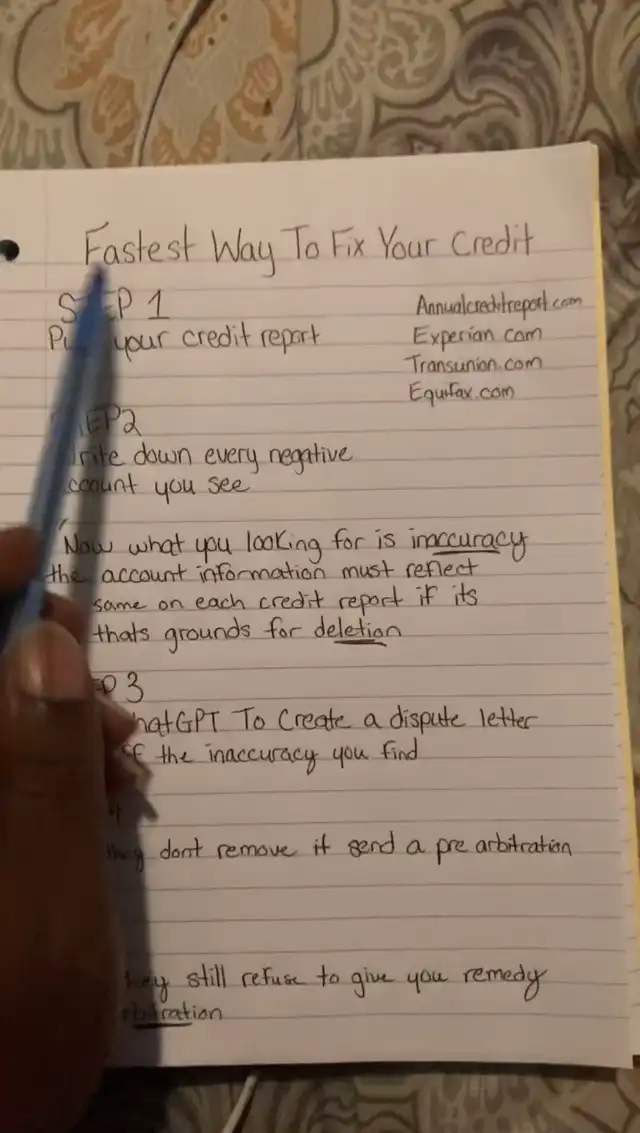 Fastest Way To Fix Your Credit
STEP 1
your credit report
Annualcreditreport.com
Experian.com
Transunion.com
Equifax.com
down every negative
you see
Now what you looking for is inaccuracy
the account information must reflect
same on each credit report if its
thats grounds for deletion
3
To Create a dispute letter
the inaccuracy you find
dont remove it send a pre arbitration
still refuse to give you remedy